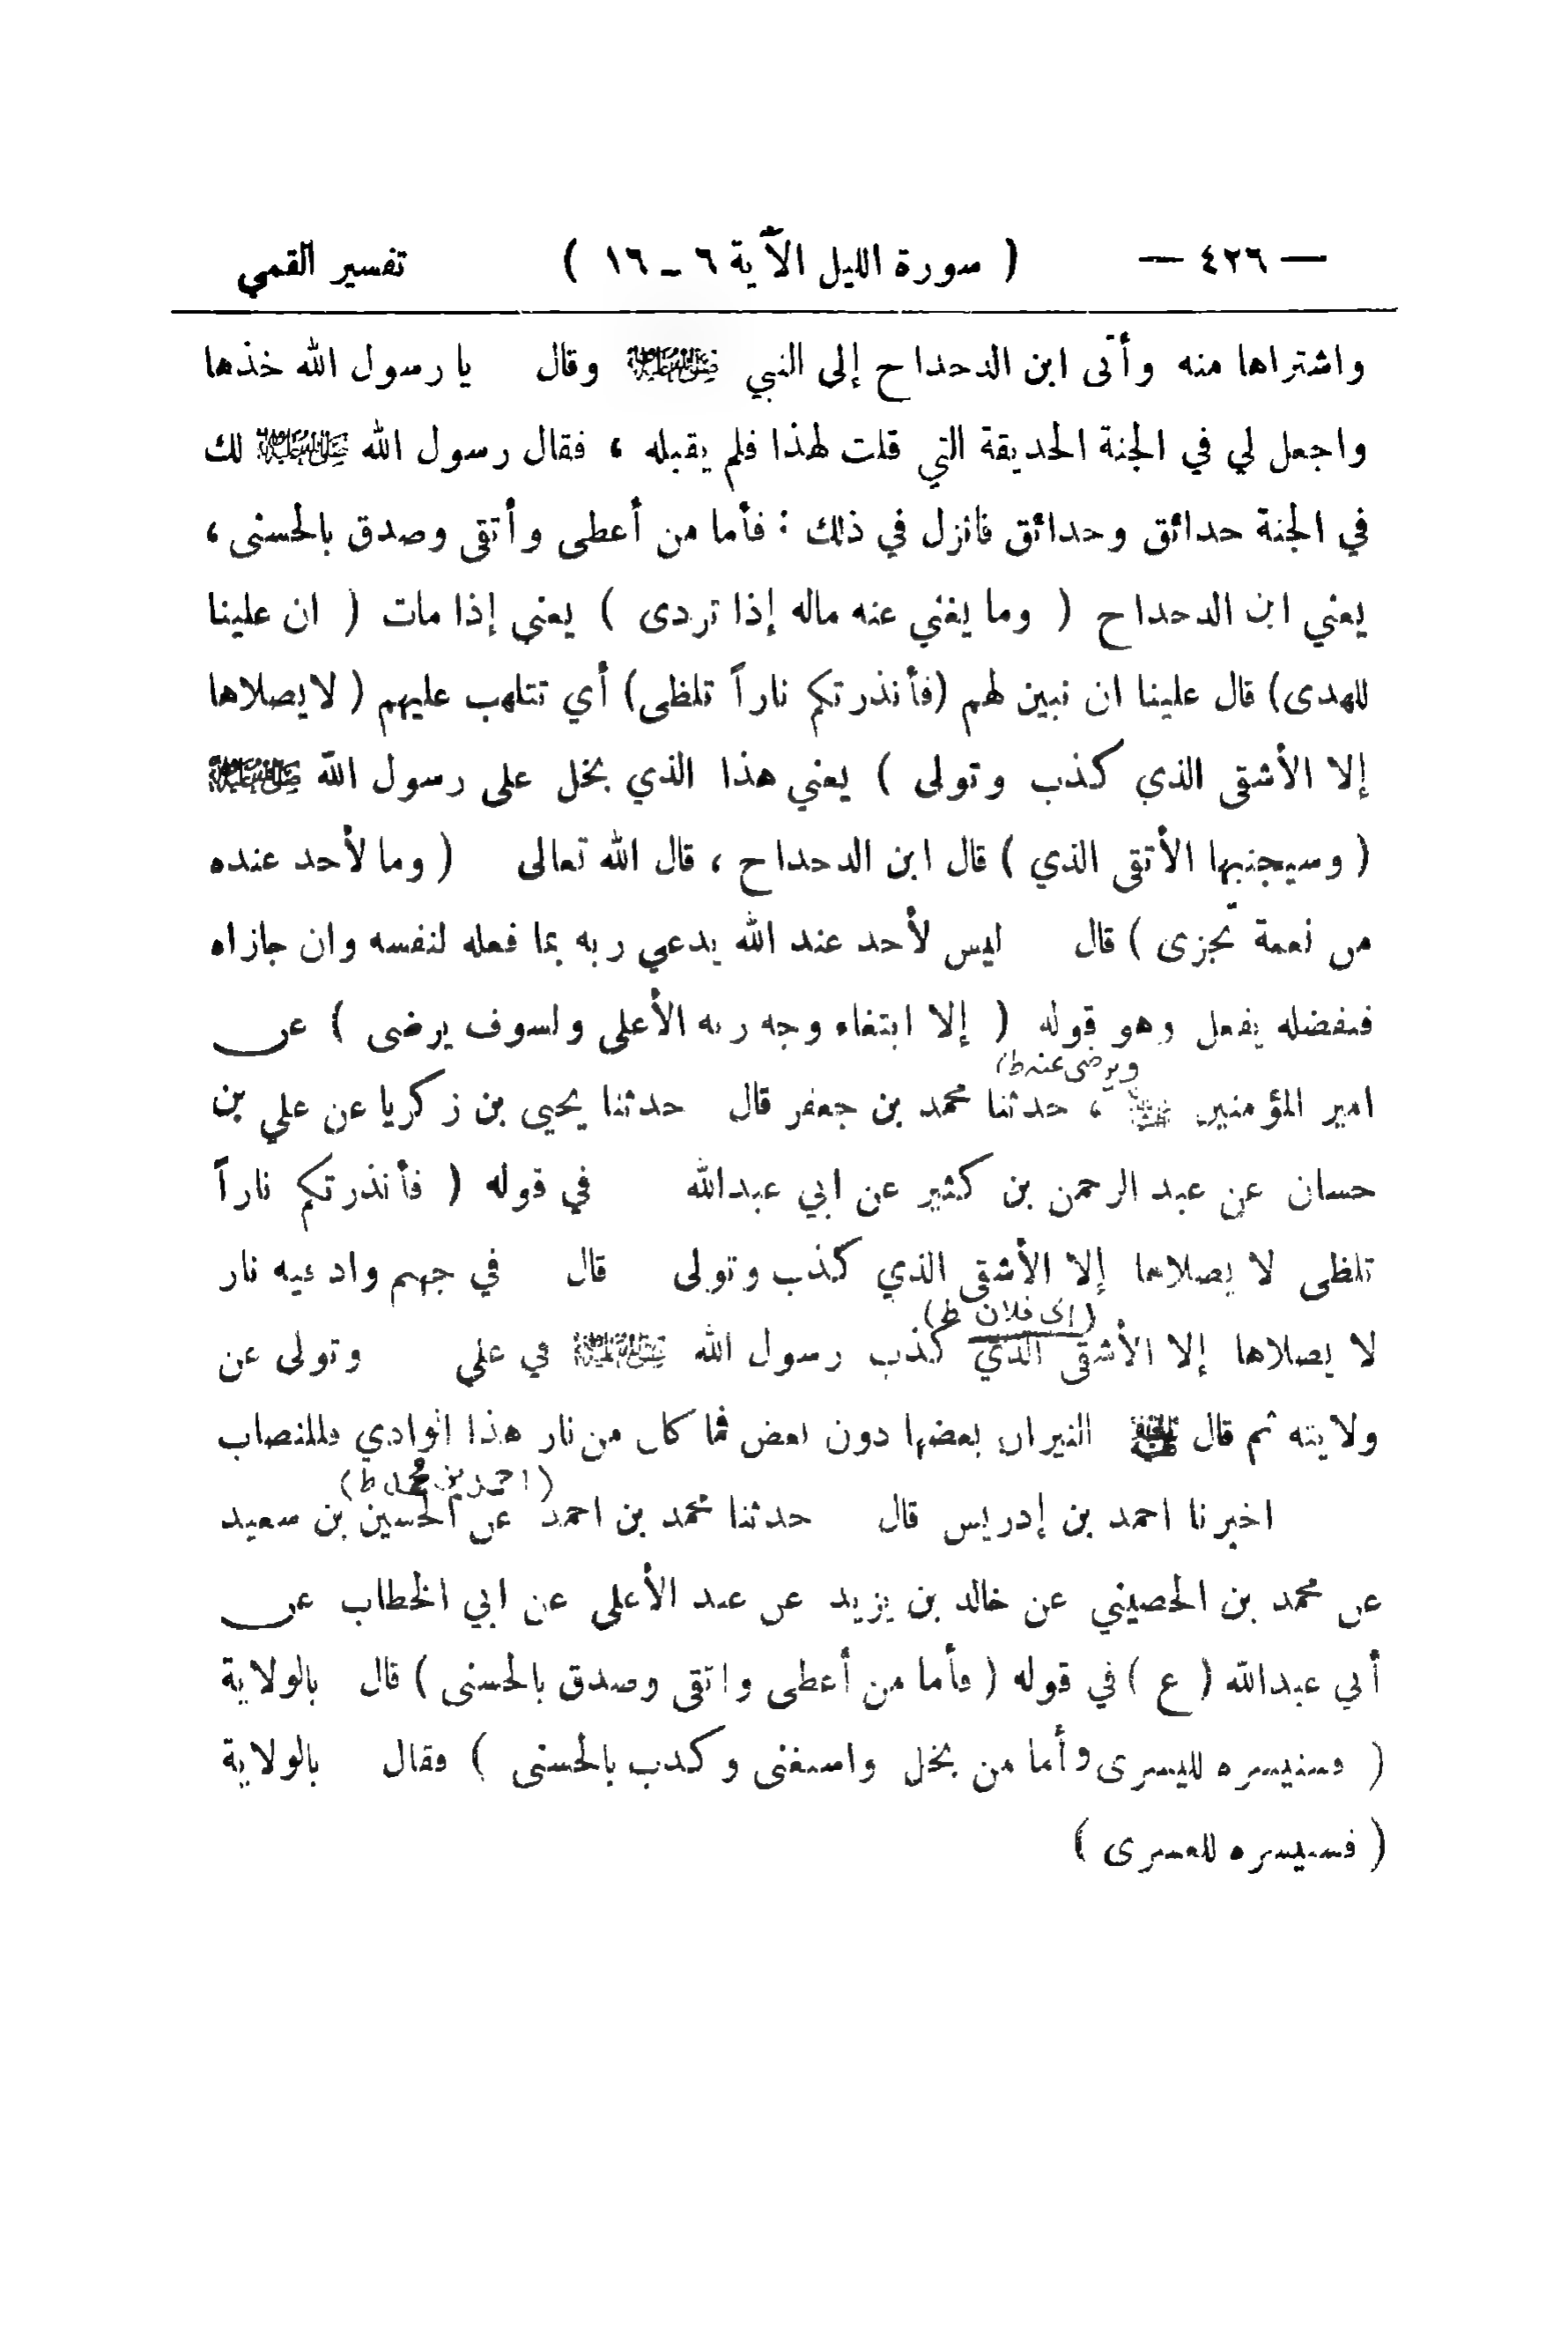 — ٤٢٦ — ( سورة الليل الآية ٦ ـ ١٦ ) تفسير القمي
واشتراها منه وأتى ابن الدحداح إلى النبي ﷺ وقال يا رسول الله خذها
واجعل لي في الجنة الحديقة التي قلت لهذا فلم يقبله ، فقال رسول الله ﷺ لك
في الجنة حدائق وحدائق فانزل في ذلك : فأما من أعطى وأتقى وصدق بالحسنى ،
يعني ابن الدحداح ( وما يغني عنه ماله إذا تردى ) يعني إذا مات ( ان علينا
للهدى) قال علينا ان نبين لهم (فأنذرتكم ناراً تلظى) أي تتلهب عليهم ( لايصلاها
إلا الأشقى الذي كذب وتولى ) يعني هذا الذي بخل على رسول الله ﷺ
( وسيجنبها الأتقى الذي ) قال ابن الدحداح ، قال الله تعالى ( وما لأحد عنده
من نعمة تجزى ) قال ليس لأحد عند الله يدعي ربه بما فعله لنفسه وان جازاه
فبفضله يفعل وهو قوله ( إلا ابتغاء وجه ربه الأعلى ولسوف يرضى ) عن
ويرضى عنه ط)
امير المؤمنين ، حدثنا محمد بن جعفر قال حدثنا يحيى بن زكريا عن علي بن
حسان عن عبد الرحمن بن كثير عن ابي عبدالله في قوله ( فأنذرتكم ناراً
تلظى لا يصلاها إلا الأشقى الذي كذب وتولى قال في جهنم واد فيه نار
(اى فلان ط)
لا يصلاها إلا الأشقى الذي كذب رسول الله ﷺ في علي وتولى عن
ولايته ثم قال النيران بعضها دون بعض فما كان من نار هذا الوادي فللنصاب
(احمد بن محمد ط)
اخبرنا احمد بن إدريس قال حدثنا محمد بن احمد عن الحسين بن سعيد
عن محمد بن الحصيني عن خالد بن يزيد عن عبد الأعلى عن ابي الخطاب عن
أبي عبدالله ( ع ) في قوله ( فأما من أعطى واتقى وصدق بالحسنى ) قال بالولاية
( فسنيسره لليسرى وأما من بخل واستغنى وكذب بالحسنى ) فقال بالولاية
( فسنيسره للعسرى )